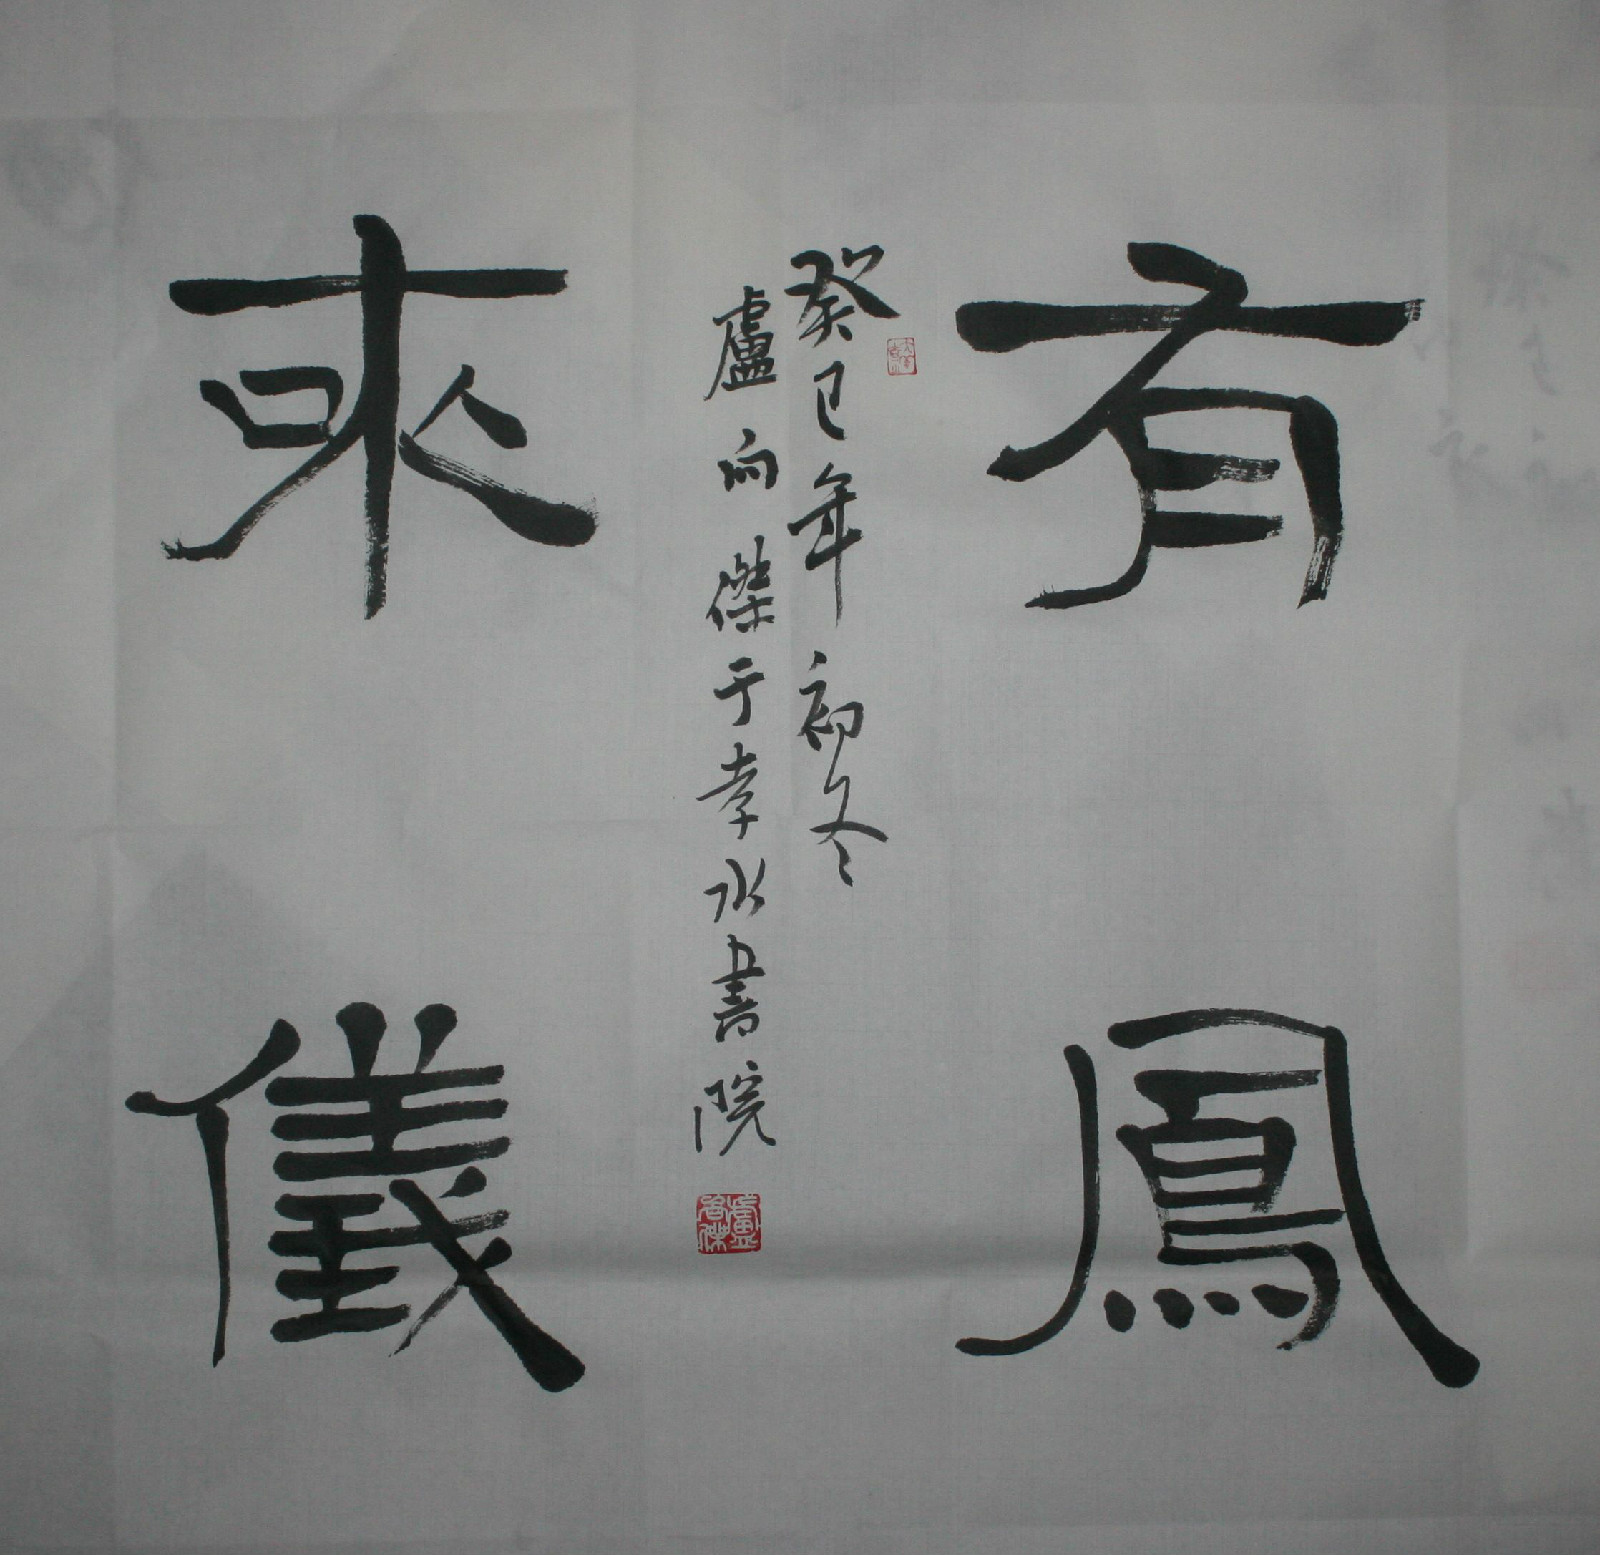 有鳳
癸巳年初冬
盧向傑于孝水書院
來儀